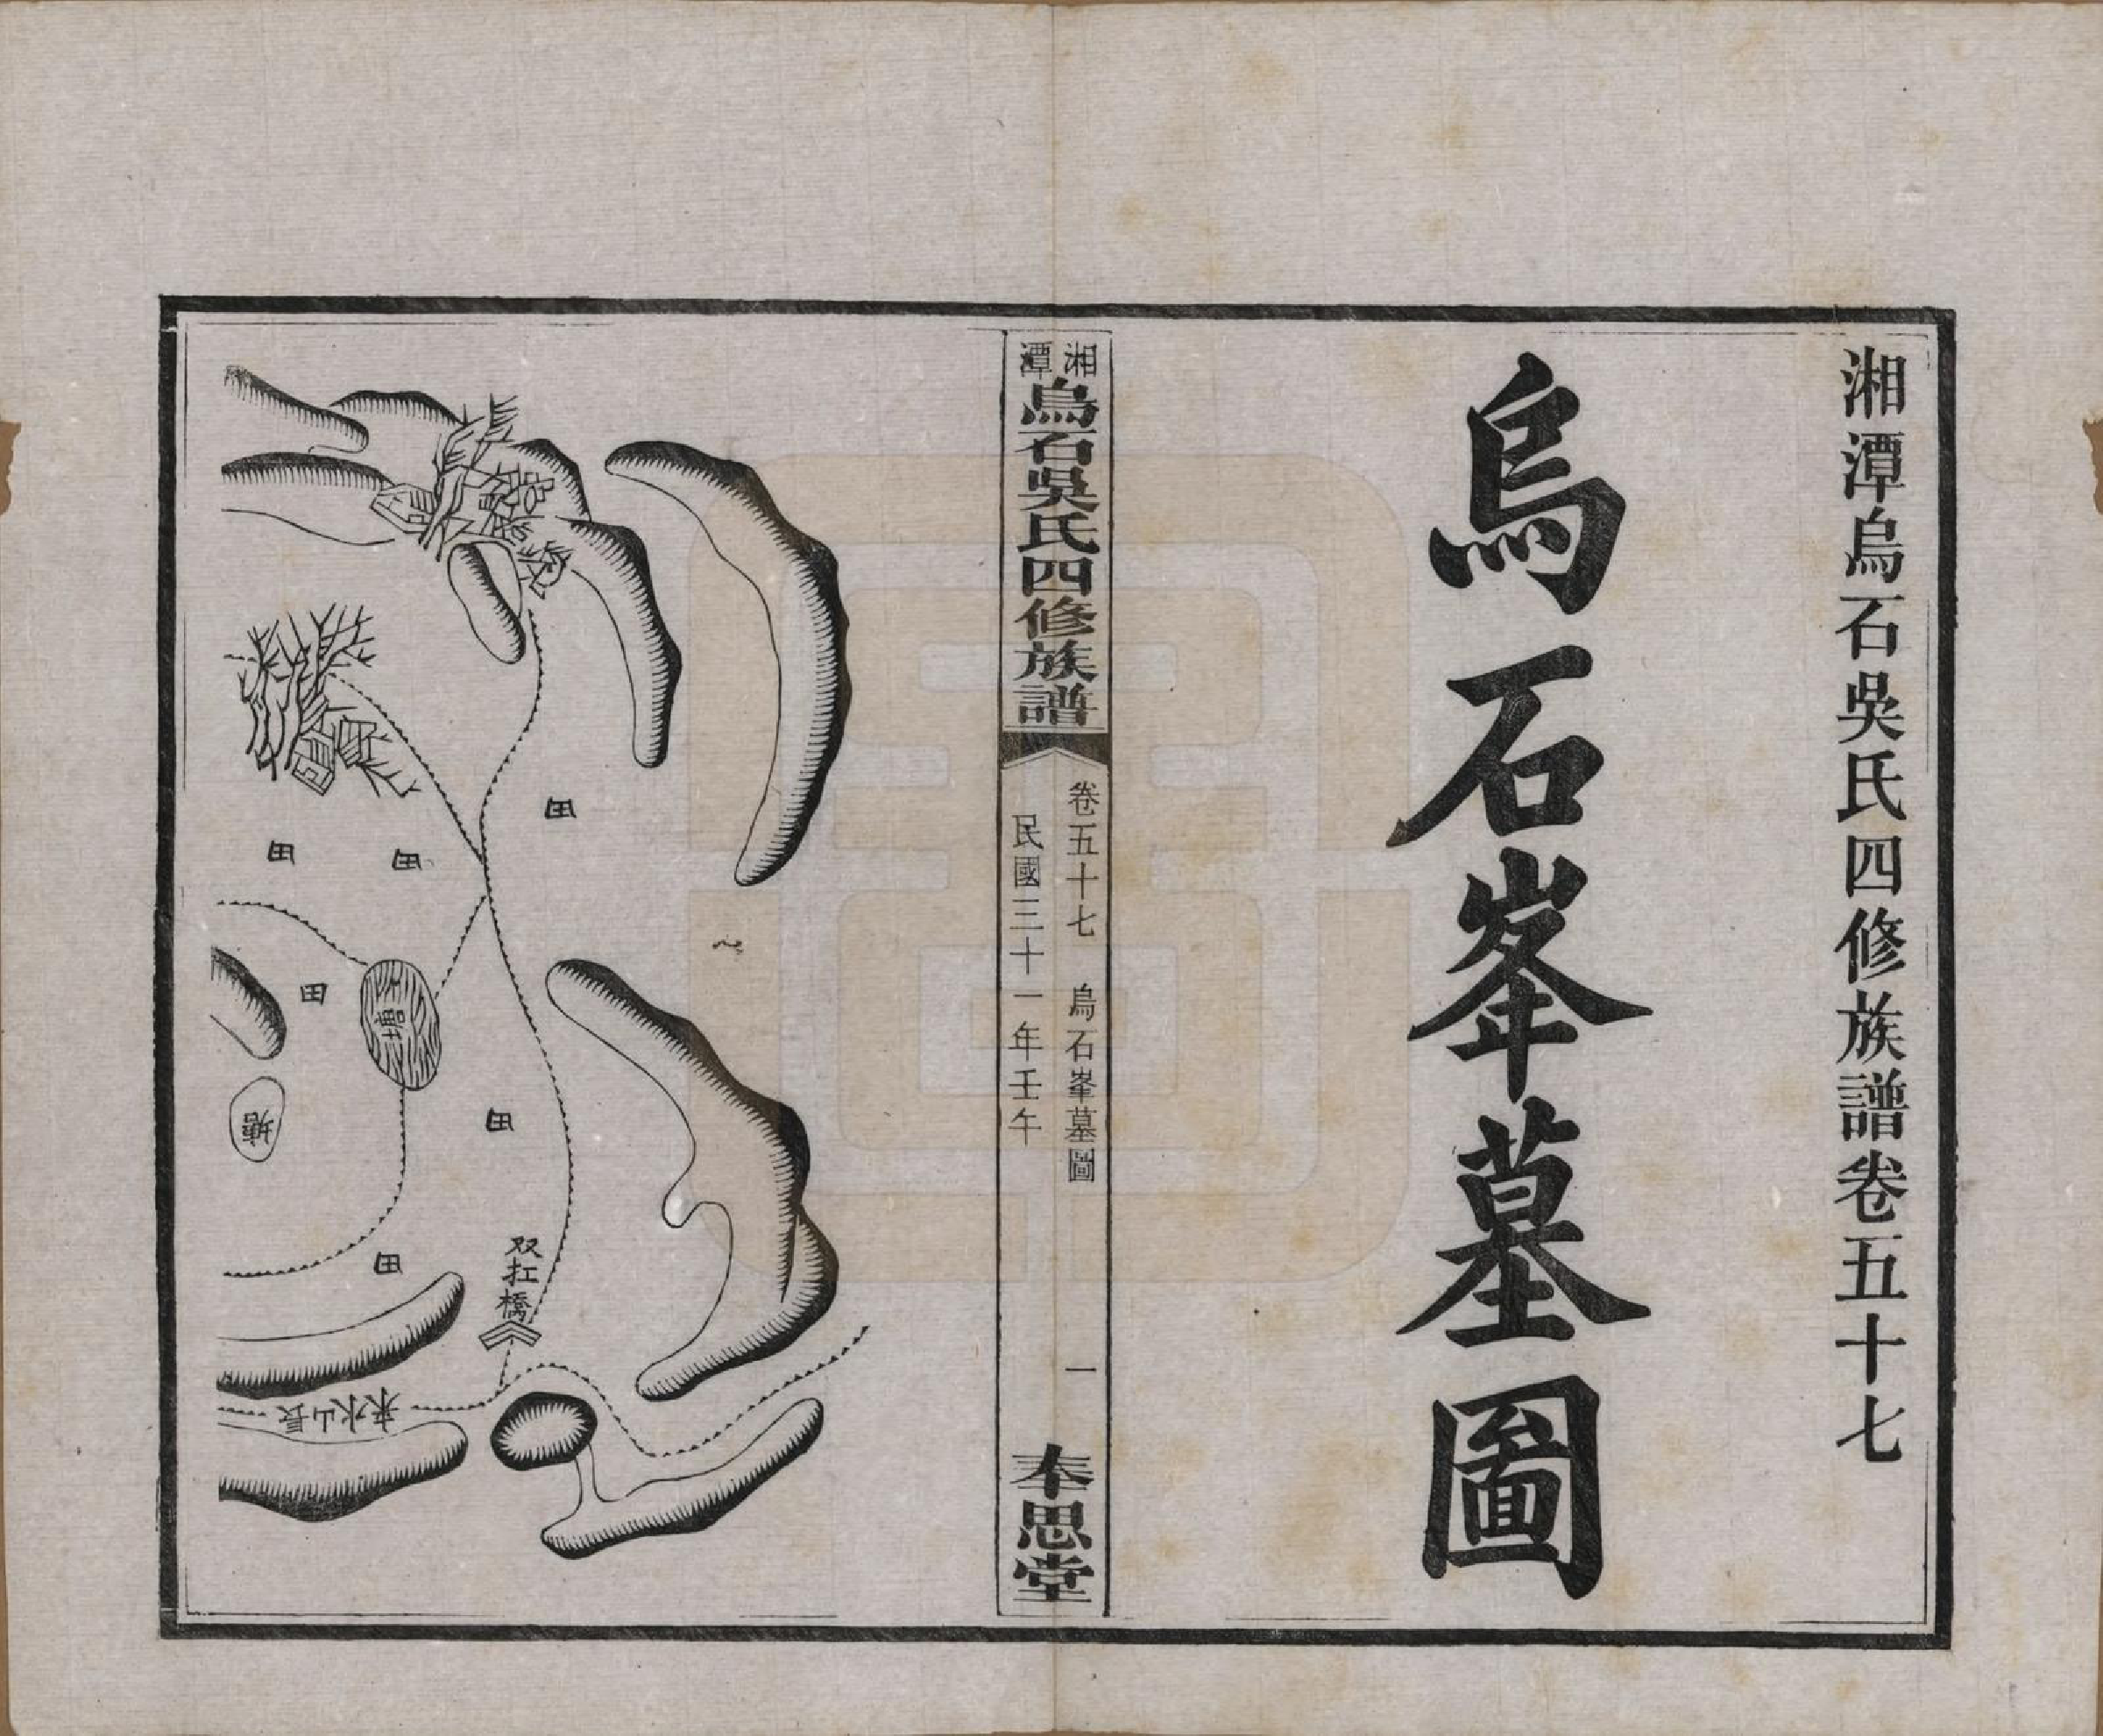 湘潭烏石吳氏四修族譜卷五十七
烏石峯墓圖
湘潭
烏石吳氏四修族譜
卷五十七
烏石峯墓圖
一
民國三十一年壬午
奉思堂
田
田
田
田
塘
塘
田
田
双扛橋
長山水来